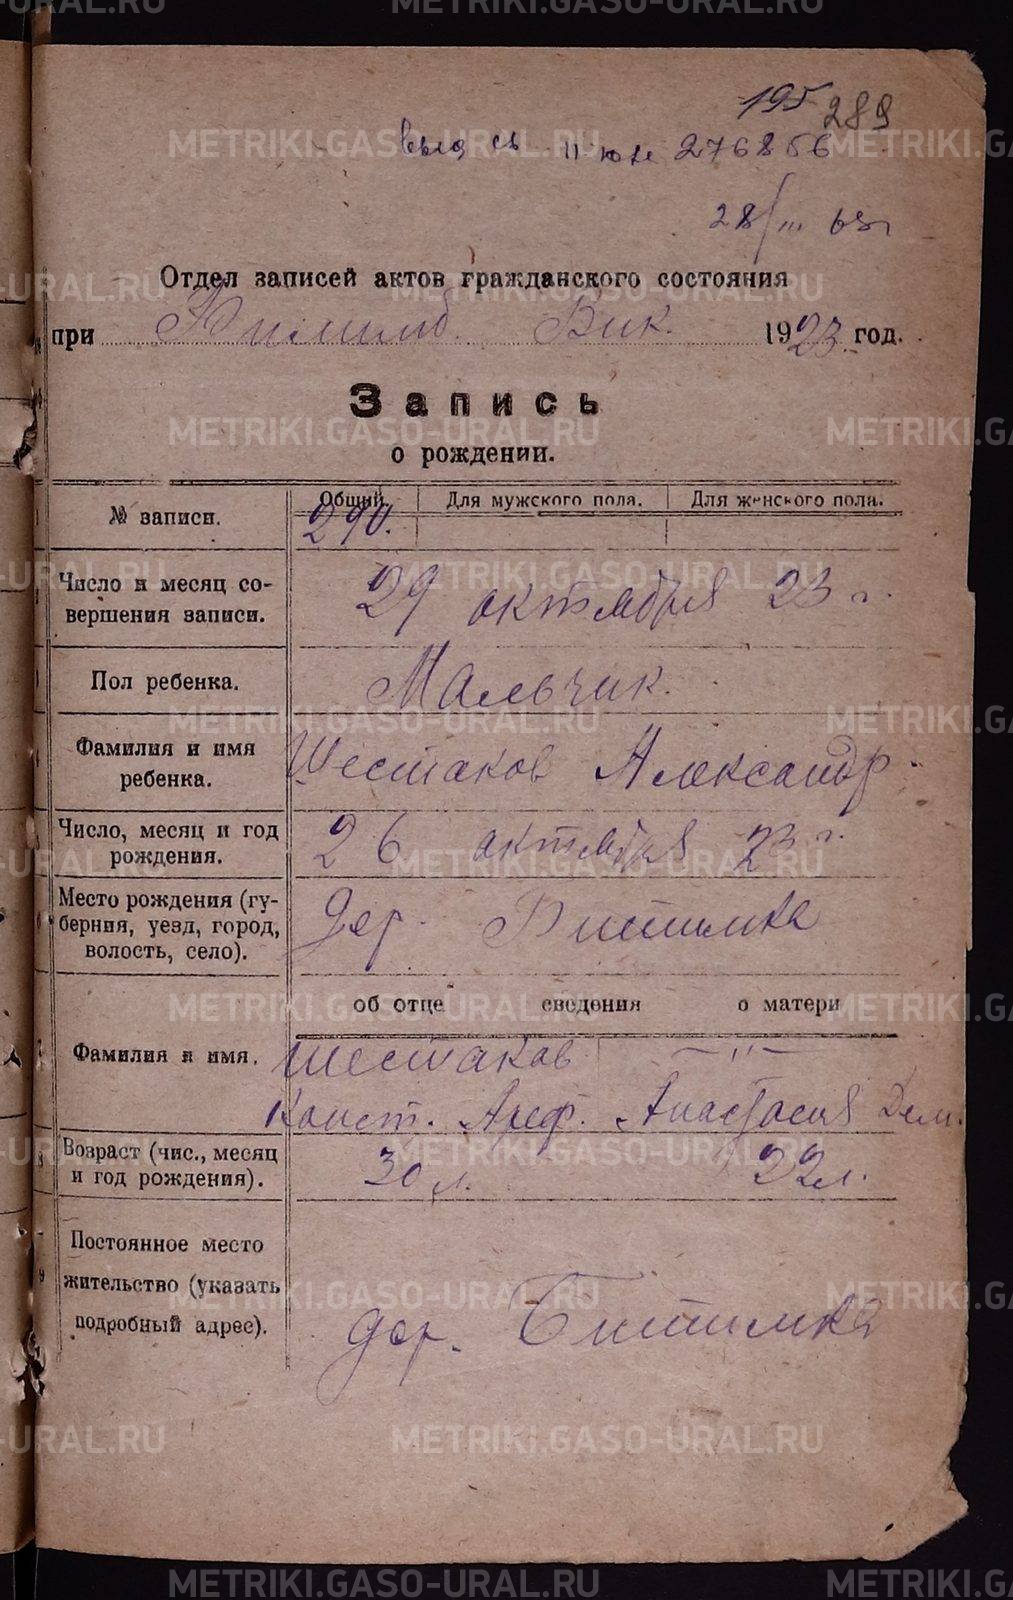 195 289
276856
28/III 63г
Отдел записей актов гражданского состояния
при Вик. 1923 год.
Запись
о рождении.
№ записи. Общий. Для мужского пола. Для женского пола.
290.
Число и месяц со-
вершения записи. 29 октября 23 г.
Пол ребенка. Мальчик.
Фамилия и имя
ребенка. Шестаков Александр.
Число, месяц и год
рождения. 26 октября 23 г.
Место рождения (гу-
берния, уезд, город,
волость, село). дер. Битимка
об отце сведения о матери
Фамилия и имя. Шестаков — " —
Конст. Ареф. Анастасия Дем.
Возраст (чис., месяц
и год рождения). 30 л. 22 л.
Постоянное место
жительство (указать
подробный адрес). дер. Битимка
METRIKI.GASO-URAL.RU